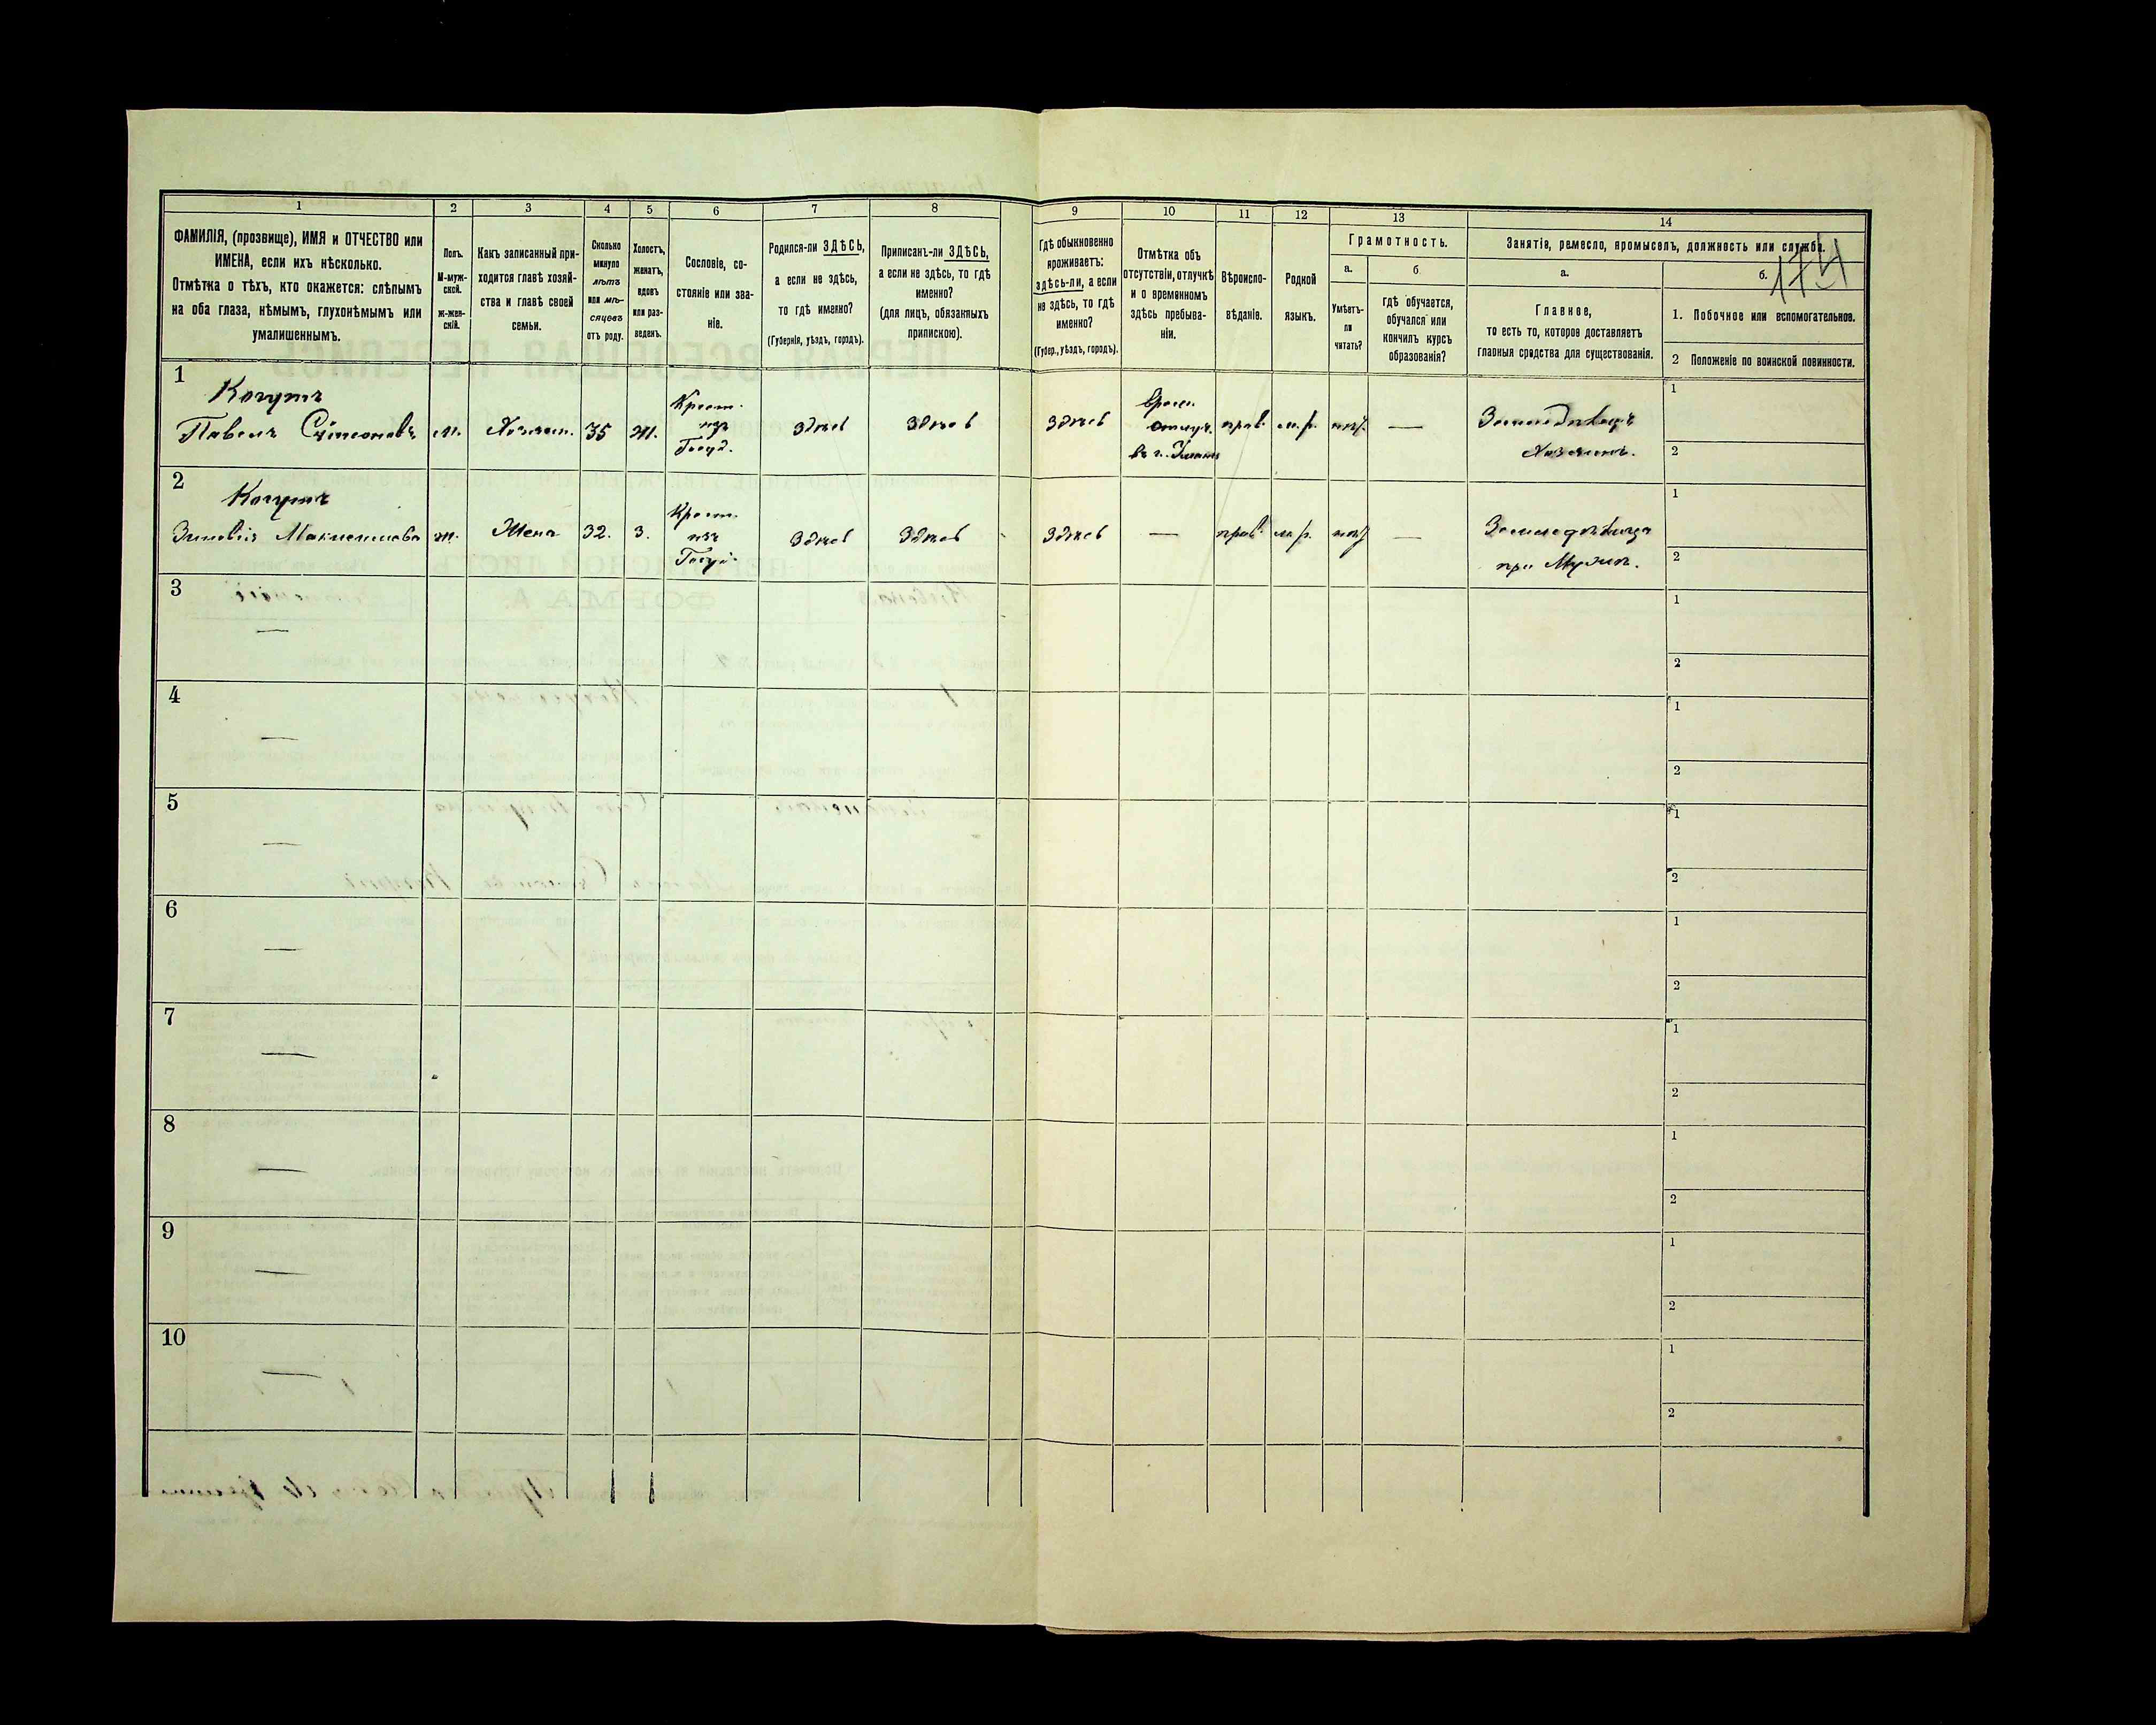 1 2 3 4 5 6 7 8 9 10 11 12 13 14
ФАМИЛІЯ, (прозвище), ИМЯ и ОТЧЕСТВО или
ИМЕНА, если ихъ нѣсколько.
Отмѣтка о тѣхъ, кто окажется: слѣпымъ
на оба глаза, нѣмымъ, глухонѣмымъ или
умалишеннымъ.
Полъ.
М-муж-
ской.
ж-жен-
скій.
Какъ записанный при-
ходится главѣ хозяй-
ства и главѣ своей
семьи.
Сколько
минуло
лѣтъ
или мѣ-
сяцевъ
отъ роду.
Холостъ,
женатъ,
вдовъ
или раз-
веденъ.
Сословіе, со-
стояніе или зва-
ніе.
Родился-ли ЗДѢСЬ,
а если не здѣсь,
то гдѣ именно?
(Губернія, уѣздъ, городъ).
Приписанъ-ли ЗДѢСЬ,
а если не здѣсь, то гдѣ
именно?
(для лицъ, обязанныхъ
припискою).
Гдѣ обыкновенно
проживаетъ:
здѣсь-ли, а если
не здѣсь, то гдѣ
именно?
(Губер., уѣздъ, городъ).
Отмѣтка объ
отсутствіи, отлучкѣ
и о временномъ
здѣсь пребыва-
ніи.
Вѣроиспо-
вѣданіе.
Родной
языкъ.
Грамотность.
а.
Умѣетъ-
ли
читать?
б
гдѣ обучается,
обучался или
кончилъ курсъ
образованія?
Занятіе, ремесло, промыселъ, должность или служба.
174
а.
Главное,
то есть то, которое доставляетъ
главныя средства для существованія.
б.
1. Побочное или вспомогательное.
2 Положеніе по воинской повинности.
1
Когутъ
Павелъ Сѵмеоновъ
м.
Хозяин.
35
Ж.
Крест.
изъ
Госуд.
здѣсь
здѣсь
здѣсь
врем.
отлуч.
въ г.
прав.
м. р.
нѣт
—
Земледѣлецъ
Хозяинъ.
1
2
2
Когутъ
Зиновія
ж.
Жена
32.
З.
Крест.
изъ
Госуд.
здѣсь
здѣсь
здѣсь
—
прав.
м. р.
нѣт
—
Земледѣлица
при Мужѣ.
1
2
3
—
1
2
4
—
1
2
5
—
1
2
6
—
1
2
7
—
1
2
8
—
1
2
9
—
1
2
10
—
1
2